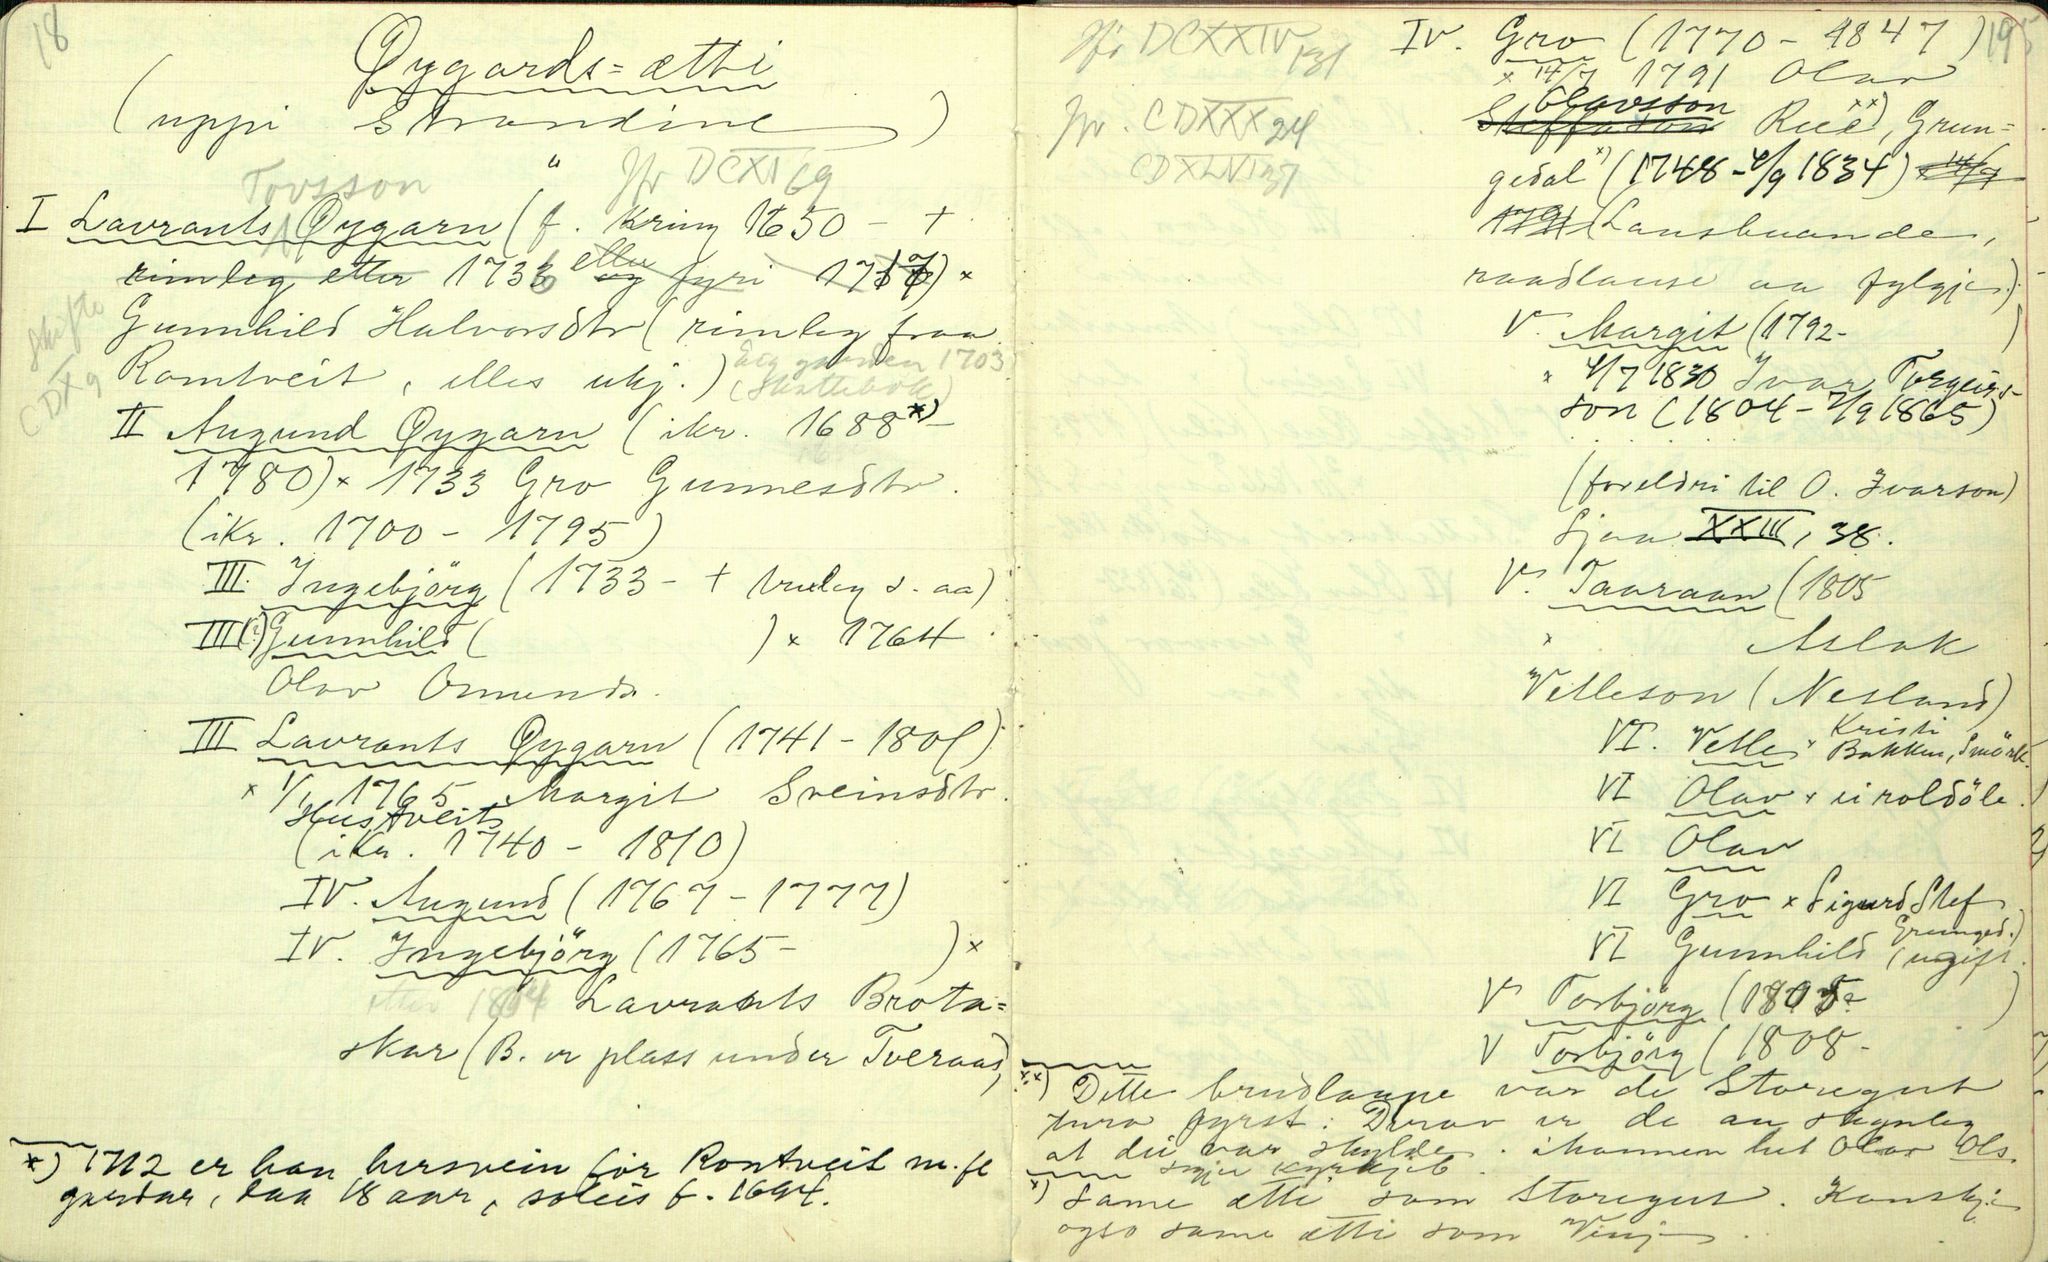 18
Øygards=ætti
(uppi Strondine)
Tovsson " Jfr DCXI 69
I Lavrants Øygarn (f. kring 1650 - +
rimleg etter 1733 eller fyri 1717) ×
Gunnhild Halvorsdtr (rimleg fraa
Romtveit, elles ukj.) Eig garden 1703
(Skattebok)
skifte
CDX 9
II Augund Øygarn (ikr. 1688 *) -
1780) × 1733 Gro Gunnesdtr.
(ikr. 1700 - 1795)
III. Ingebjörg (1733 - + truleg s. aa)
III(?) Gunnhild ( ) × 1764
Olav Ormunds.
III Lavrants Øygarn (1741 - 1801)
× 1/1 1765 Margit Sveinsdtr.
Hustveit
(ikr. 1740 - 1810)
IV. Augund (1767 - 1777)
IV. Ingebjörg (1765 - ) ×
etter 1804 Lavrants Brota=
skar (B. er plass under Tveraas)
*) 1712 er han hersvein for Romtveit m. fl
gardar, daa 18 aar, soleis f. 1694.
Jfr DCXXIV 131
Jfr. CDXXX 24
CDXLVI 37
195
IV. Gro (1770 - 1847)
× 14/7 1791 Olav
Olavsson
Steffason Ree ××), Grun=
gedal ×) (1748 - 4/9 1834) 14/7
1791 (Lausbuande,
raadlause aa fylgje.)
V. Margit (1792 - )
× 4/7 1830 Ivar Torgeirs-
son (1804 - 7/9 1865)
(foreldri til O. Ivarson)
Sjaa XXIII, 38.
V. Taaraan (1805
× Aslak
Vetleson (Nesland)
VI. Vetle × Kristi
Bakken, Smörk.
VI Olav × ei roldöle.
VI Olav
VI Gro × Sigurd Stef
Grunged.)
VI Gunnhild (ugift.
V Torbjörg (1805 - )
V Torbjörg (1808 -
××) Dette brudlaupe var de Storegut
turo fyrst. Derav er de au skynleg
at dei var skylde. Mannen het Olav Ols.
segje kyrkjeb
×) Same ætti som Storegut. Kanskje
ogso same ætti som Vinje.